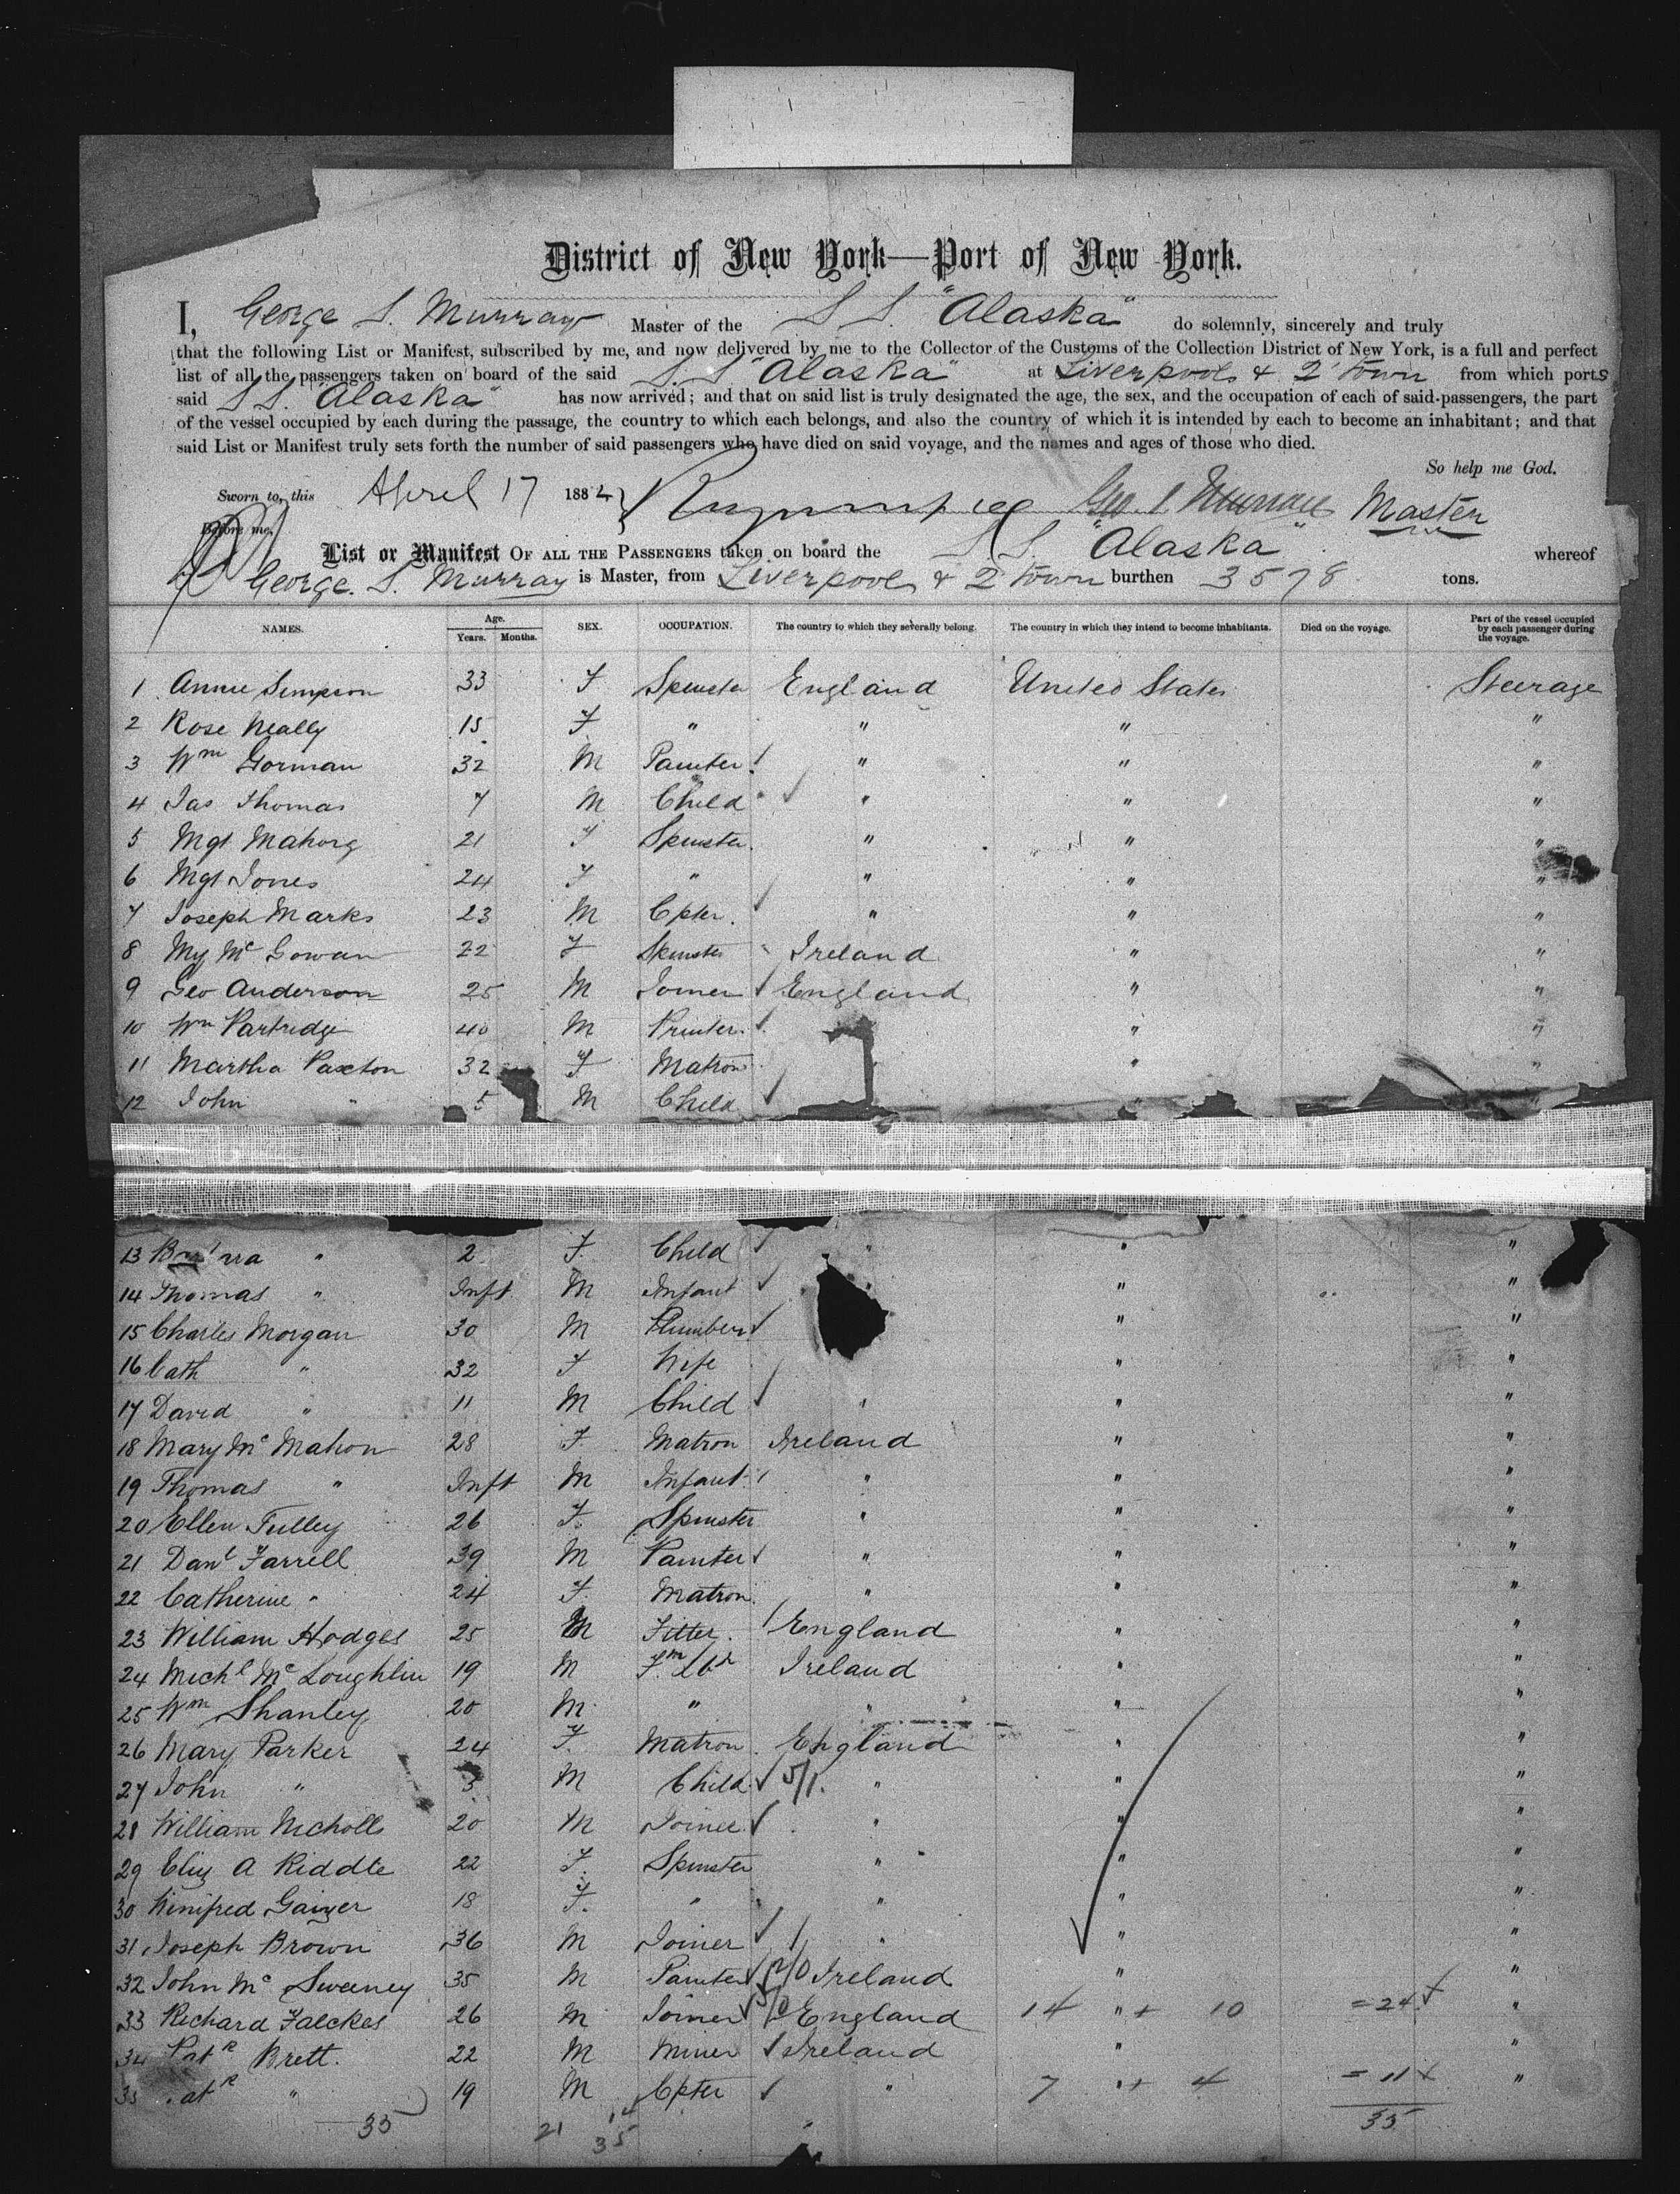 District of New York—Port of New York.
I, George S. Murray Master of the S S. "Alaska" do solemnly, sincerely and truly
that the following List or Manifest, subscribed by me, and now delivered by me to the Collector of the Customs of the Collection District of New York, is a full and perfect
list of all the passengers taken on board of the said S. S "Alaska" at Liverpool & Q'town from which ports
said S S. "Alaska" has now arrived; and that on said list is truly designated the age, the sex, and the occupation of each of said passengers, the part
of the vessel occupied by each during the passage, the country to which each belongs, and also the country of which it is intended by each to become an inhabitant; and that
said List or Manifest truly sets forth the number of said passengers who have died on said voyage, and the names and ages of those who died.
So help me God.
Sworn to, this April 17 1882 Geo. S Murray Master
Before me,
List or Manifest OF ALL THE PASSENGERS taken on board the S. S. "Alaska" whereof
George. S. Murray is Master, from Liverpool & Q'town burthen 3578 tons.
NAMES. Age. Years. Months. SEX. OCCUPATION. The country to which they severally belong. The country in which they intend to become inhabitants. Died on the voyage. Part of the vessel occupied by each passenger during the voyage.
1 Annie Simpson 33 F Spinster England United States Steerage
2 Rose Neally 15 F " " " "
3 Wm Gorman 32 M Painter " " "
4 Jas Thomas 7 M Child " " "
5 Mgt Mahorg 21 F Spinster " " "
6 Mgt Jones 24 F " " " "
7 Joseph Marks 23 M Cpter. " " "
8 My McGowan 22 F Spinster Ireland " "
9 Geo Anderson 25 M Joiner England " "
10 Wm Partridge 40 M Printer " "
11 Martha Paxton 32 F Matron " "
12 John " 5 M Child " "
13 " 2 F. Child " " "
14 Thomas " Inft M Infant " " "
15 Charles Morgan 30 M Plumber " "
16 Cath " 32 F Wife " "
17 David " 11 M Child " " "
18 Mary McMahon 28 F. Matron Ireland " "
19 Thomas " Inft M Infant " " "
20 Ellen Tulley 26 F. Spinster " " "
21 Danl Farrell 39 M Painter " " "
22 Catherine " 24 F. Matron " " "
23 William Hodges 25 M Fitter. England " "
24 Michl McLoughlin 19 M Fm Lbr Ireland " "
25 Wm Shanley 20 M. " " " "
26 Mary Parker 24 F. Matron England " "
27 John " 3 M Child 5/1. " " "
28 William Nicholls 20 M Joiner " " "
29 Eliz A Riddle 22 F. Spinster " " "
30 Winifred Gaizer 18 F. " " " "
31 Joseph Brown 36 M Joiner " " "
32 John McSweeney 35 M Painter Ireland " "
33 Richard Falckes 26 M Joiner England 14 " + 10 = 24 "
34 Patk Brett. 22 M Miner Ireland " "
35 " 19 M Cpter " 7 " + 4 = 11 "
35 21 14 35 35